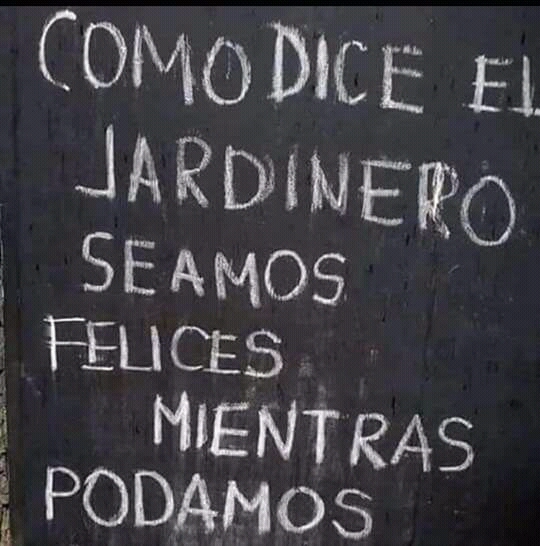 COMO DICE EL
JARDINERO
SEAMOS
FELICES
MIENTRAS
PODAMOS